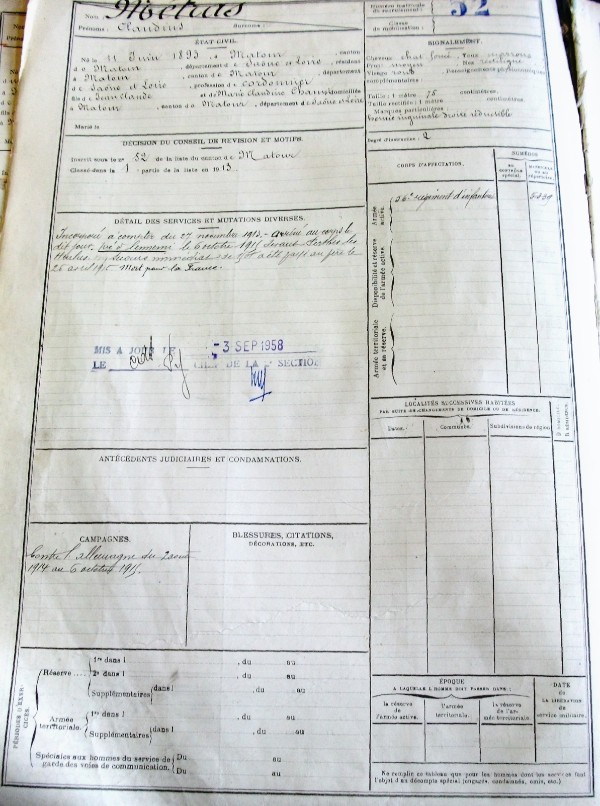 Nom : Métras
Prénoms : Claudius Surnoms :
ÉTAT CIVIL.
Né le 11 Juin 1893, à Matour, canton
de Matour, département de Saône et Loire, résidant
à Matour, canton de Matour, département
de Saône et Loire, profession de cordonnier
fils de Jean Claude et de Marie Claudine domiciliés
à Matour, canton de Matour, département de Saône et Loire
Marié à
DÉCISION DU CONSEIL DE RÉVISION ET MOTIFS.
Inscrit sous le n° 52 de la liste du canton de Matour
Classé dans la 1 partie de la liste en 1913.
DÉTAIL DES SERVICES ET MUTATIONS DIVERSES.
Incorporé à compter du 27 novembre 1913. - Arrivé au corps le
dit jour. Tué à l'ennemi le 6 octobre 1915 devant Perthes les
Hurlus
Mort pour la France.
MIS A JOUR LE -3 SEP 1958
LE CHEF DE LA SECTION
ANTÉCÉDENTS JUDICIAIRES ET CONDAMNATIONS.
CAMPAGNES.
Contre l'allemagne du 2 août
1914 au 6 octobre 1915.
BLESSURES, CITATIONS,
DÉCORATIONS, ETC.
PÉRIODES D'EXERCICES.
Réserve
1re dans l , du au
2e dans l , du au
Supplémentaires dans l , du au
Armée territoriale.
1re dans l , du au
Supplémentaires dans l , du au
Spéciales aux hommes du service de
garde des voies de communication.
Du au
Du au
Numéro matricule
de recrutement :
52
Classe
de mobilisation :
SIGNALEMENT.
Cheveux chat. foncé, Yeux marrons
Front moyen Nez rectiligne
Visage rond Renseignements physionomiques
complémentaires
Taille : 1 mètre 75 centimètres.
Taille rectifiée : 1 mètre centimètres.
Marques particulières
Hernie inguinale droite réductible
Degré d'instruction : 2
CORPS D'AFFECTATION.
NUMÉROS
au contrôle spécial.
matricule ou au répertoire.
Armée active.
régiment d'infanterie
Disponibilité et réserve
de l'armée active.
Armée territoriale
et sa réserve.
LOCALITÉS SUCCESSIVES HABITÉES
PAR SUITE DE CHANGEMENTS DE DOMICILE OU DE RÉSIDENCE.
Dates.
Communes.
Subdivisions de région.
D. DOMICILE.
R. RÉSIDENCE.
ÉPOQUE
À LAQUELLE L'HOMME DOIT PASSER DANS :
la réserve
de l'armée active.
l'armée
territoriale.
la réserve
de l'ar-
mée territoriale.
DATE
de
LA LIBÉRATION
du
service militaire.
Ne remplir ce tableau que pour les hommes dont les services font
l'objet d'un décompte spécial (engagés, condamnés, omis, etc.)